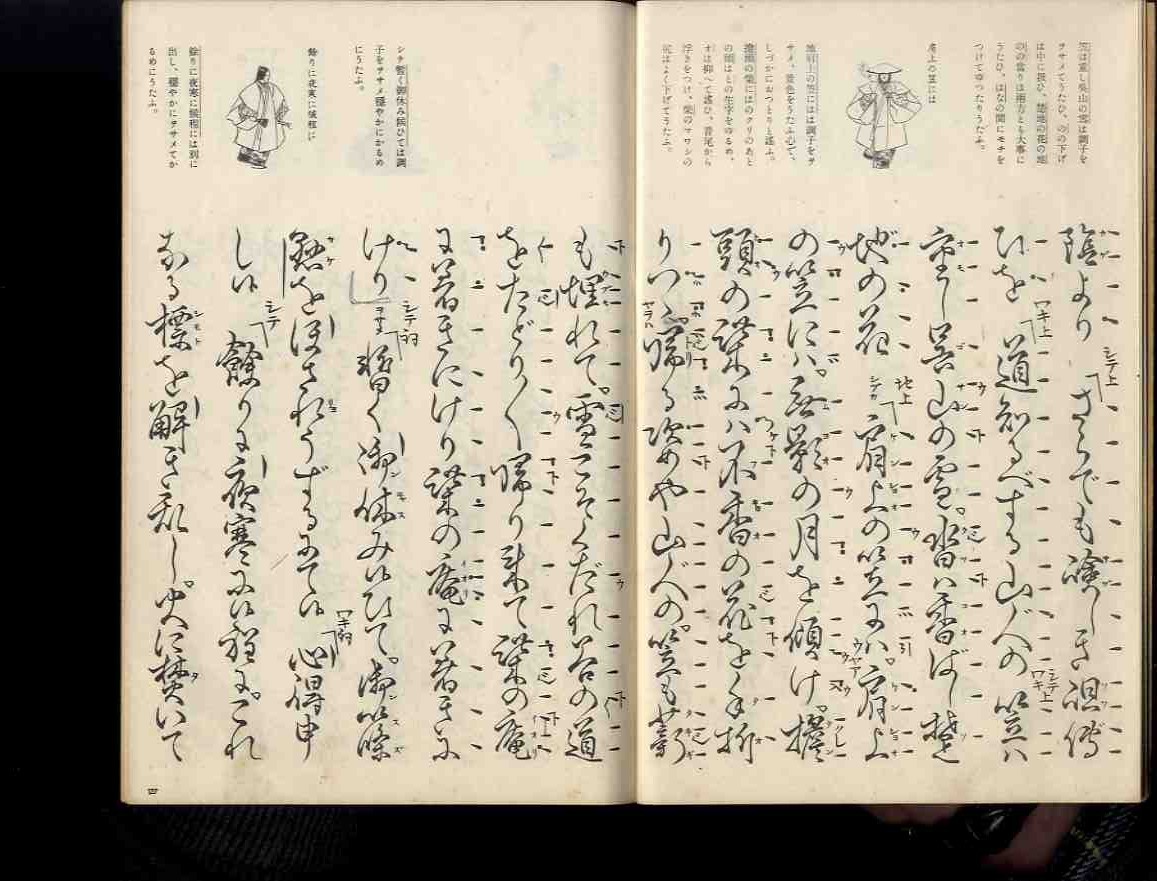 笠は重し呉山の雪は調子を
ヲサメてうたひ、のの下げ
は中に扱ひ、楚地の花の地
のの當りは兩方とも大事に
うたひ、はなの間にモチを
つけてゆつたりうたふ。
肩上の笠には
地肩上の笠にはは調子をヲ
サメ、景色をうたふ心で、
しづかにおつとりと謠ふ。
擔頭の柴にはのクリのあと
の頭はとの生字をゆるめ、
オは抑へて謠ひ、音尾から
浮きをつけ、柴のマワシの
尻はよく下げてうたふ。
陰より シテ上 さらでも嶮しき岨傳
ひを ワキ上 道知るべする山人の シテワキ上 笠ハ
重し呉山の雪。沓ハ香ばし楚
地の花 地上 肩上の笠にハ。肩上
の笠にハ。無影の月を傾け。擔
頭の柴にハ不香の花を手折
りつゝ 歸る姿や山人の。笠も薪
シテ暫く御休み候ひては調
子をヲサメ穩やかにかるめ
にうたふ。
餘りに夜寒に候程に
餘りに夜寒に候程には別に
出し、穩やかにヲサメてか
るめにうたふ。
も埋れて。雪こそくだれ谷の道
をたどり〱歸り來て柴の庵
に着きにけり柴の庵に着きに
けり シテ詞 暫く御休み候ひて。御篠
懸をほされうずるにて候 ワキ詞 心得申
し候 シテ 餘りに夜寒に候程に。これ
なる標を解き亂し。火に焚いて
四